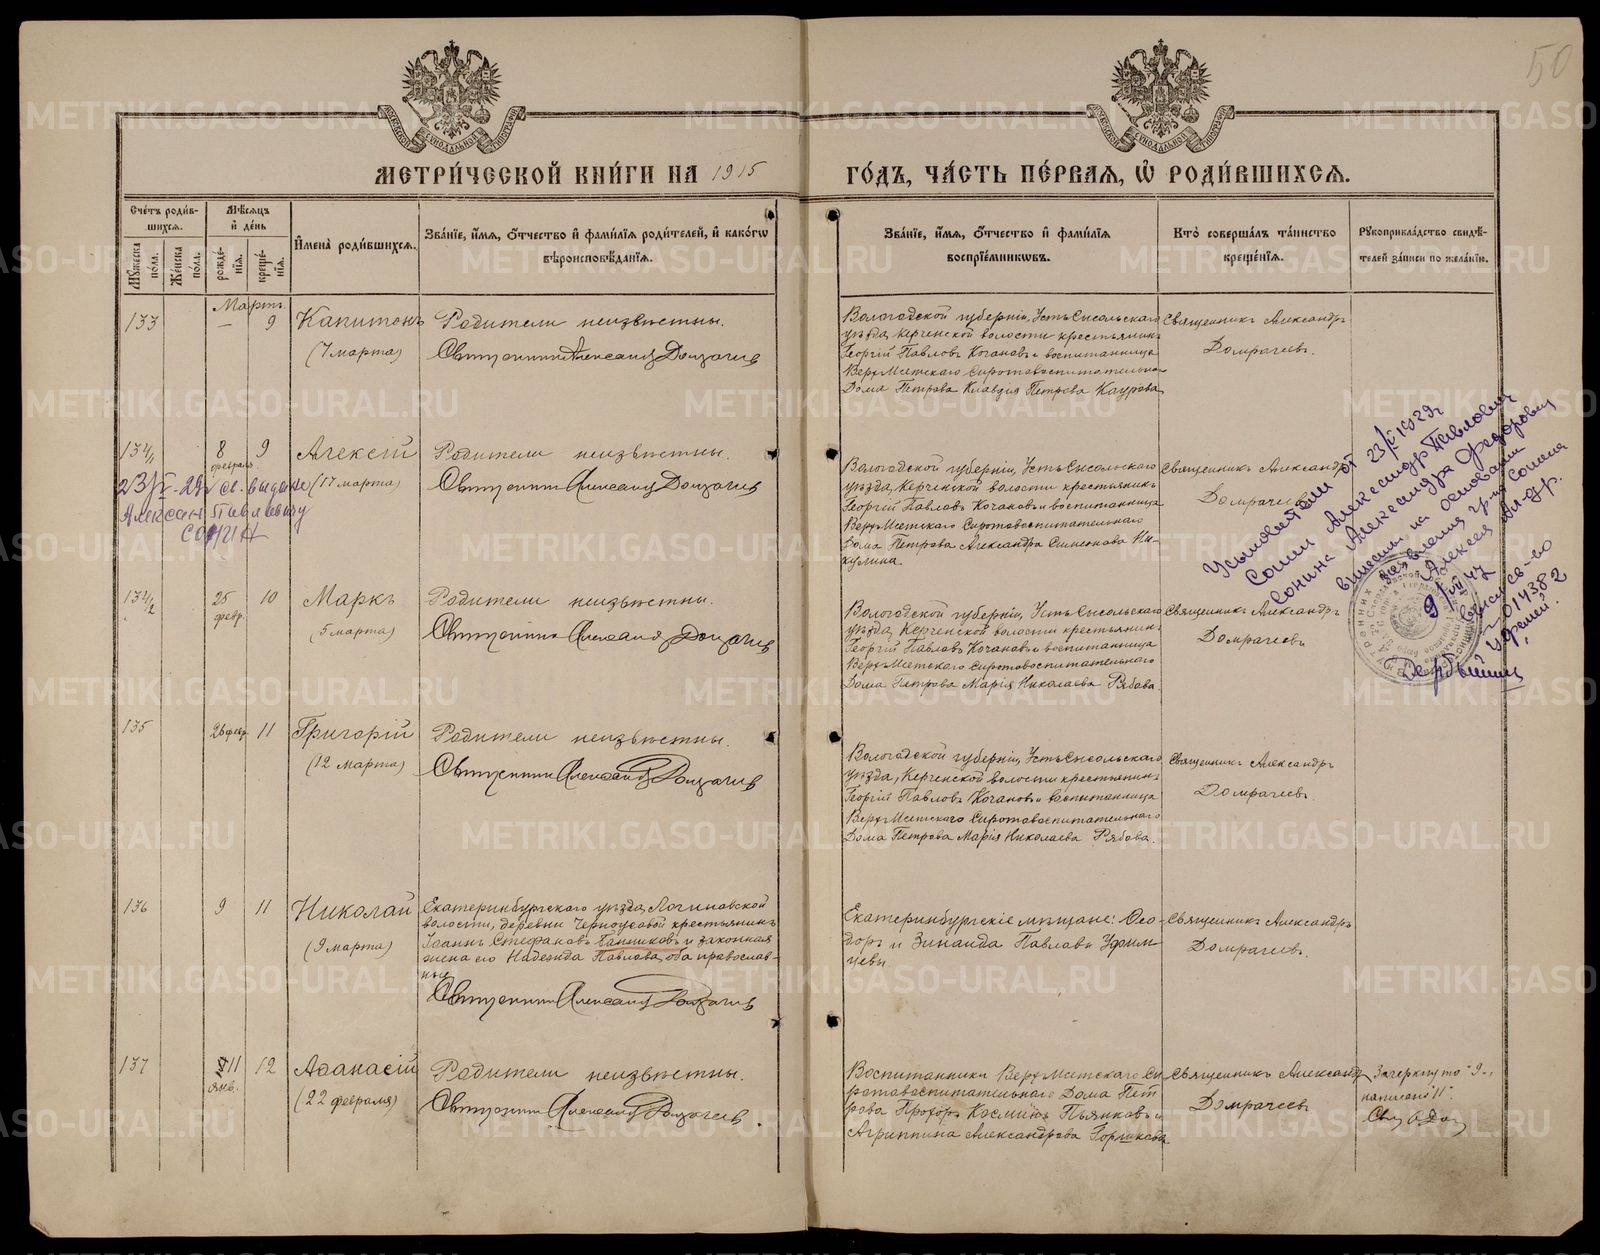 50
МОСКОВСКОЙ СѴНОДАЛЬНОЙ ТИПОГРАФІИ
МОСКОВСКОЙ СѴНОДАЛЬНОЙ ТИПОГРАФІИ
МЕТРИ́ЧЕСКОЙ КНИ́ГИ НА 1915
ГО́ДЪ, ЧА́СТЬ ПЕ́РВАѦ, Ѡ҆ РОДИ́ВШИХСѦ.
Сче́тъ роди́в-
шихсѧ.
Мꙋ́жеска по́ла.
Же́нска по́ла.
Мѣ́сѧцъ
и҆ де́нь
рожде́-
нїѧ.
креще́-
нїѧ.
И҆мена̀ роди́вшихсѧ.
Зва́нїе, и҆́мѧ, ѻ҆́тчество и҆ фами́лїѧ роди́телей, и҆ како́гѡ
вѣроисповѣ́данїѧ.
Зва́нїе, и҆́мѧ, ѻ҆́тчество и҆ фами́лїѧ
воспрїе́мникѡвъ.
Кто̀ соверша́лъ та́инство
креще́нїѧ.
Рꙋкоприкла́дство свидѣ́-
телей за́писи по жела́нїю.
Мартъ
133
— 9
Капитонъ
(7 марта)
Родители неизвѣстны.
Священникъ Александръ Домрачевъ
Вологодской губерніи, Усть Сысольскаго
уѣзда, Керченской волости крестьянинъ
Георгій Павловъ Качановъ и воспитанница
Верхъ Исетскаго Сиротовоспитательнаго
Дома Петрова Клавдія Петрова Каурова
Священникъ Александръ
Домрачевъ.
134/1
8
февраля
9
Алексій
(17 марта)
Родители неизвѣстны.
Священникъ Александръ Домрачевъ
23/V-29г св. выдано
Александ Павловичу
СОНИН
Вологодской губерніи, Усть Сысольскаго
уѣзда, Керченской волости крестьянинъ
Георгій Павловъ Качановъ и воспитанница
Верхъ Исетскаго Сиротовоспитательнаго
Дома Петрова Александра Симеонова Ни-
кулина.
Священникъ Александръ
Домрачевъ
Усыновители от 23/V 1929г
Сонин Александр Павлович
Сонина Александра Федоровна
внесены на основании
заявления гр-на Сонина
Алексея Ал-др.
9/VIII 47
134/2
25
февр.
10
Маркъ
(5 марта)
Родители неизвѣстны.
Священникъ Александръ Домрачевъ
Вологодской губерніи, Усть Сысольскаго
уѣзда, Керченской волости крестьянинъ
Георгій Павловъ Качановъ и воспитанница
Верхъ Исетскаго Сиротовоспитательнаго
Дома Петрова Марія Николаева Рябова.
Священникъ Александръ
Домрачевъ
135
26 февр.
11
Григорій
(12 марта)
Родители неизвѣстны.
Священникъ Александръ Домрачевъ
Вологодской губерніи, Усть Сысольскаго
уѣзда, Керченской волости крестьянинъ
Георгій Павловъ Качановъ и воспитанница
Верхъ Исетскаго Сиротовоспитательнаго
Дома Петрова Марія Николаева Рябова.
Священникъ Александръ
Домрачевъ.
136
9
11
Николай
(9 марта)
Екатеринбургскаго уѣзда, Логиновской
волости, деревни Черноусовой крестьянинъ
Іоаннъ Стефановъ Паньшковъ и законная
жена его Надежда Павлова, оба православ-
ные
Священникъ Александръ Домрачевъ
Екатеринбургскіе мѣщане: Ѳео-
доръ и Зинаида Павлова Уфим-
цевы
Священникъ Александръ
Домрачевъ.
137
11
янв.
12
Аѳанасій
(22 февраля)
Родители неизвѣстны.
Священникъ Александръ Домрачевъ.
Воспитанники Верхъ Исетскаго Си-
ротовоспитательнаго Дома Пет
рова Прохоръ Космичъ Пьянковъ и
Агриппина Александрова Горшкова
Священникъ Александръ
Домрачевъ
Зачеркнуто "9",
написано "11".
Свщ. А Дом
METRIKI.GASO-URAL.RU